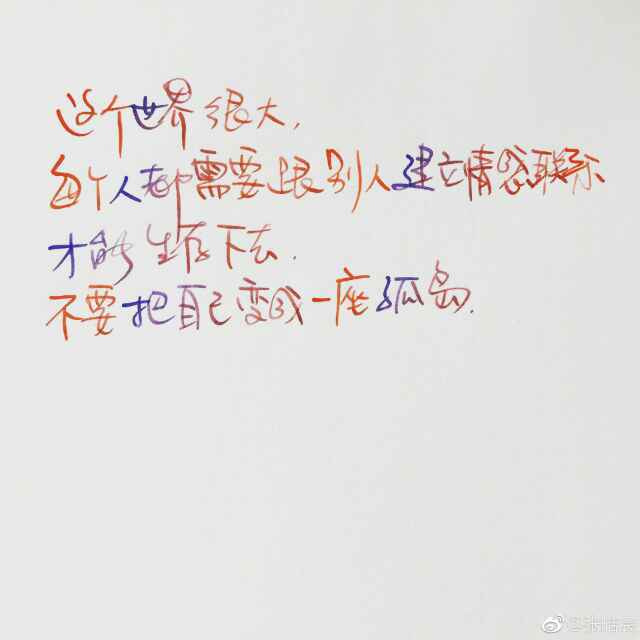 这个世界很大,
每个人都需要跟别人建立情感联系
才能生存下去.
不要把自己变成一座孤岛.